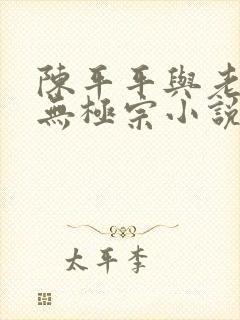 陳平平與老
無極宗小說
太平李